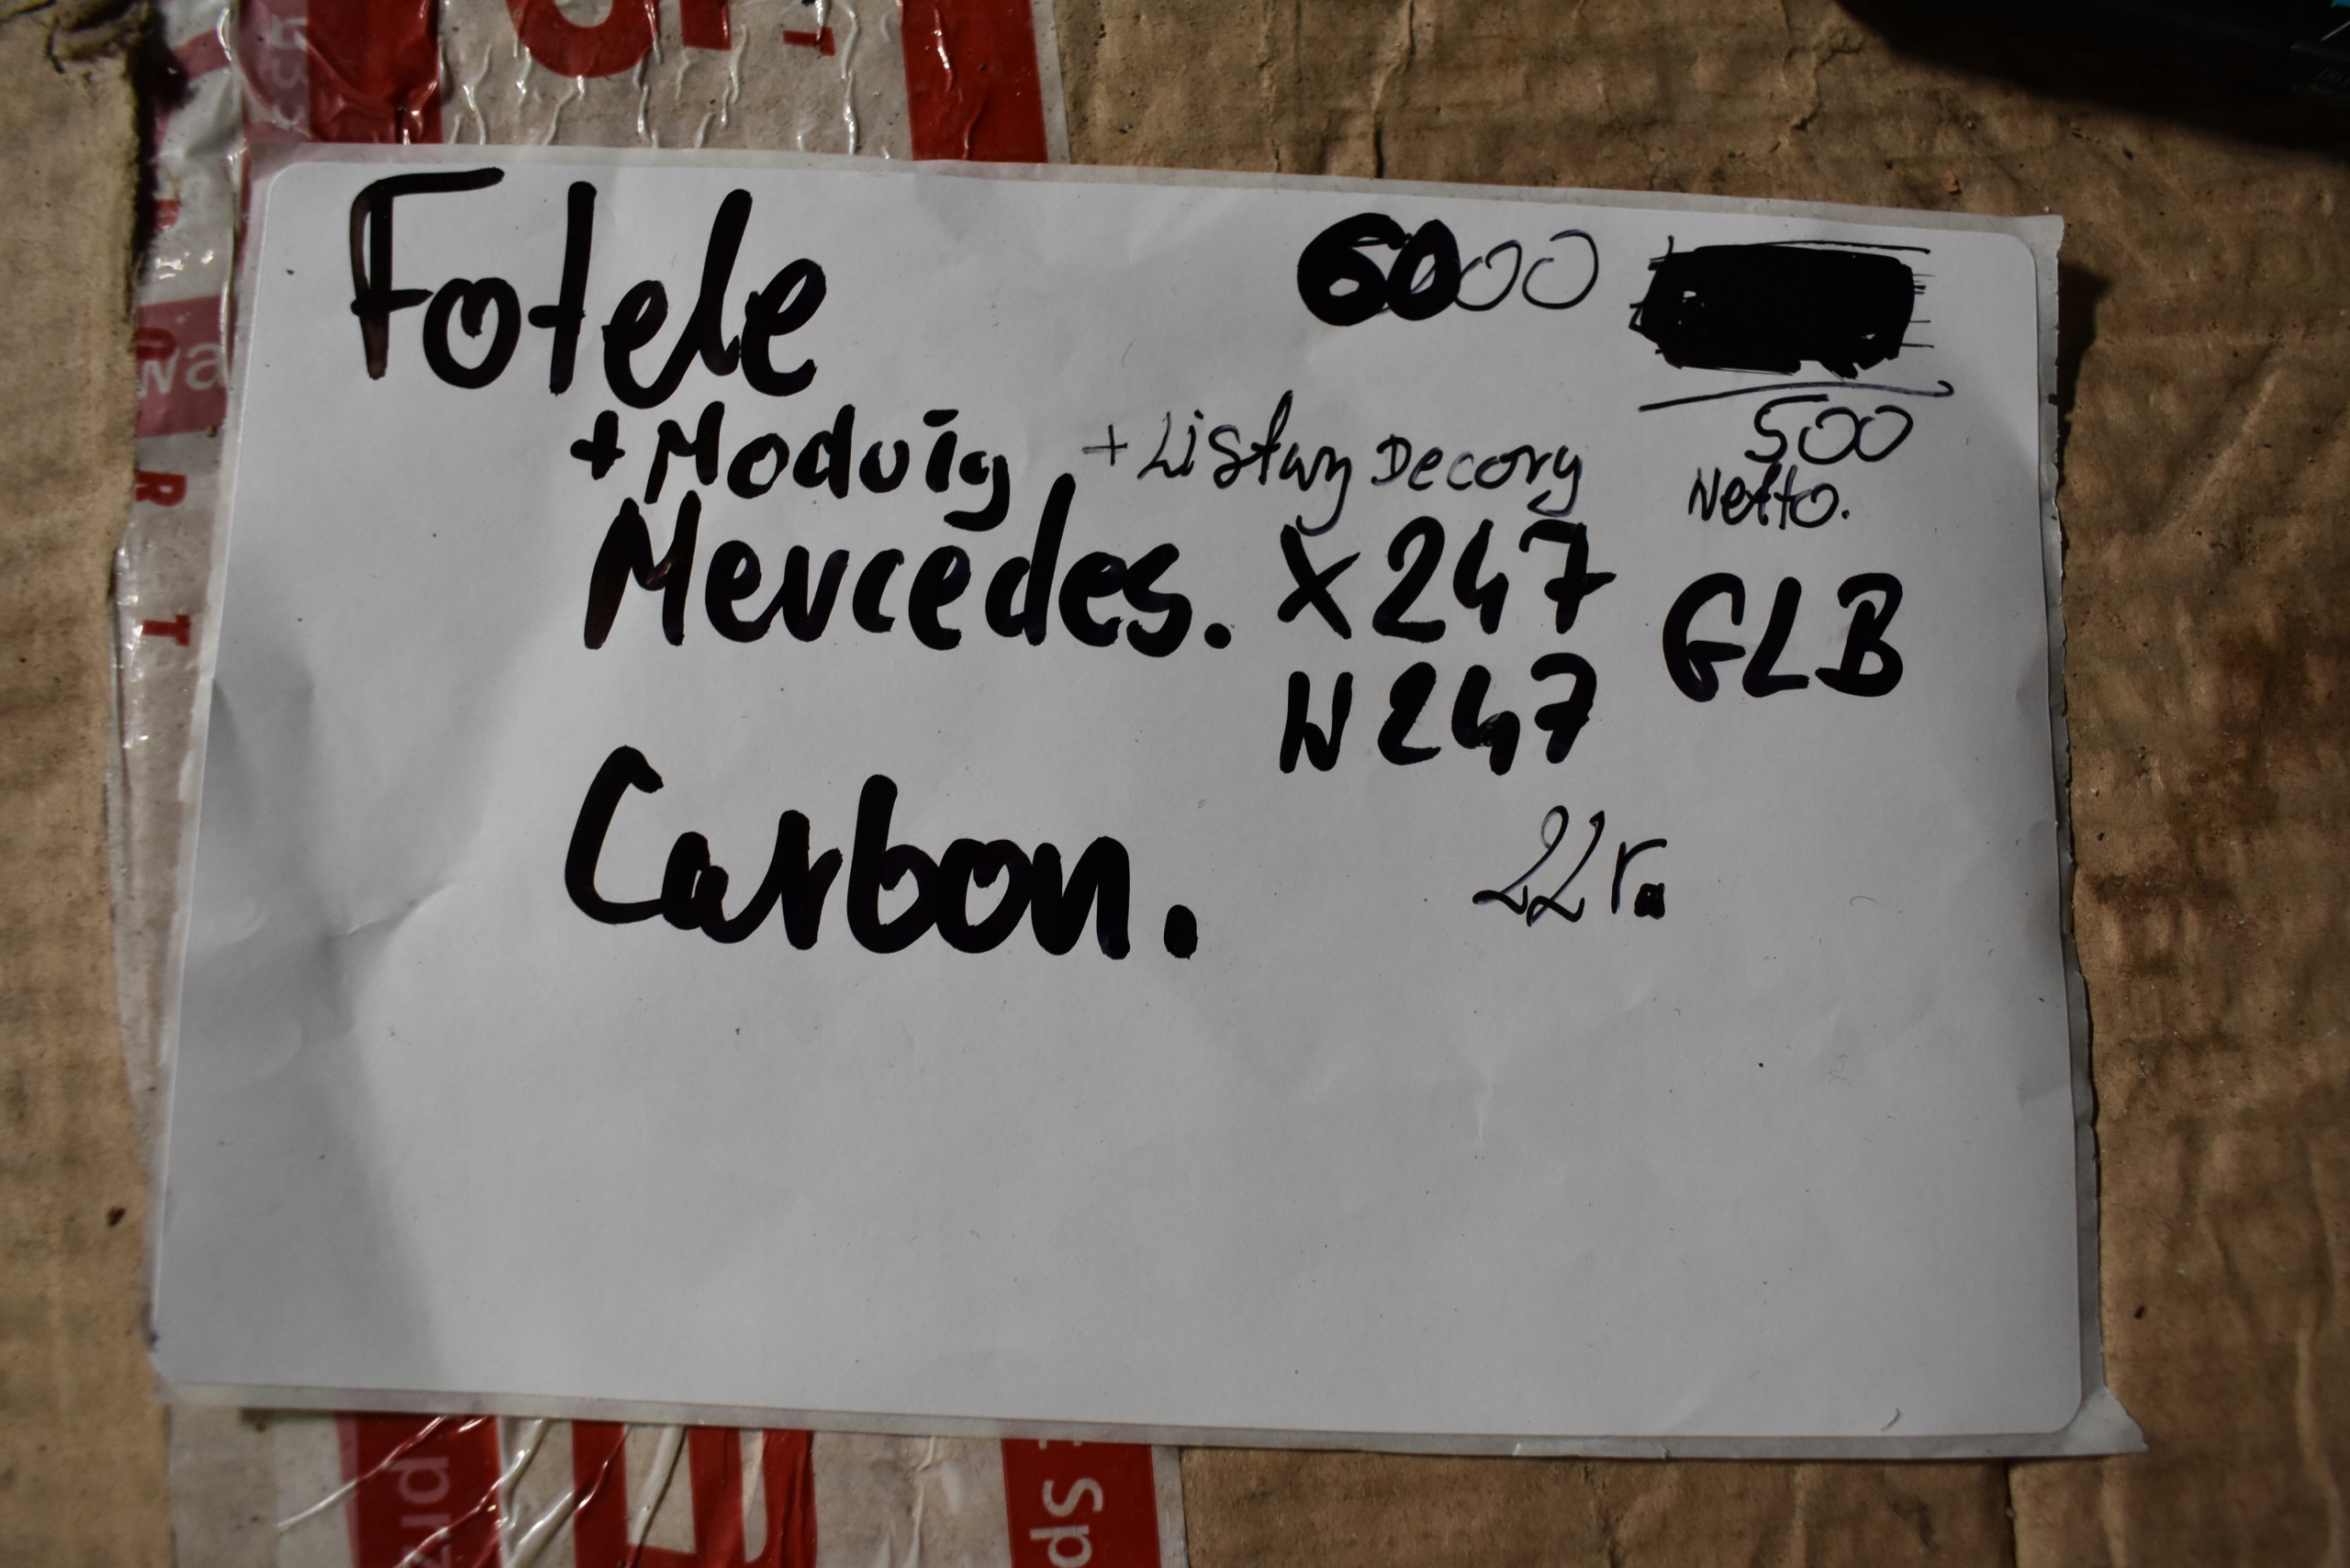 Fotele 6000
500
+ Moduły + Listwy Decory
Netto.
Mercedes. X247
GLB
W247
Carbon. 22r.
wa
R
T